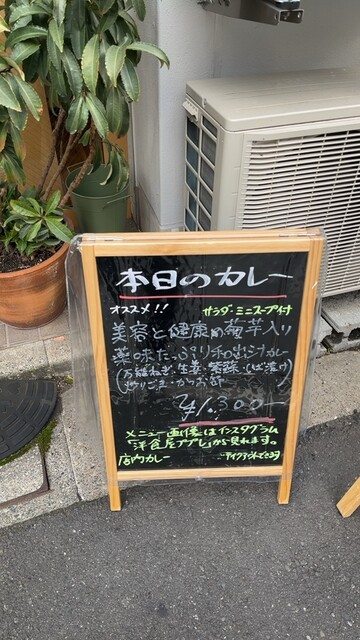 本日のカレー
オススメ!! サラダ・ミニスープ付
美容と健康の菊芋入り
薬味たっぷり和出汁カレー
(万能ねぎ・生姜・紫蘇・しば漬け
)
¥1,300-
メニュー画像はインスタグラム
「洋食屋ププレ」から見れます。
店内カレー テイクアウトできます